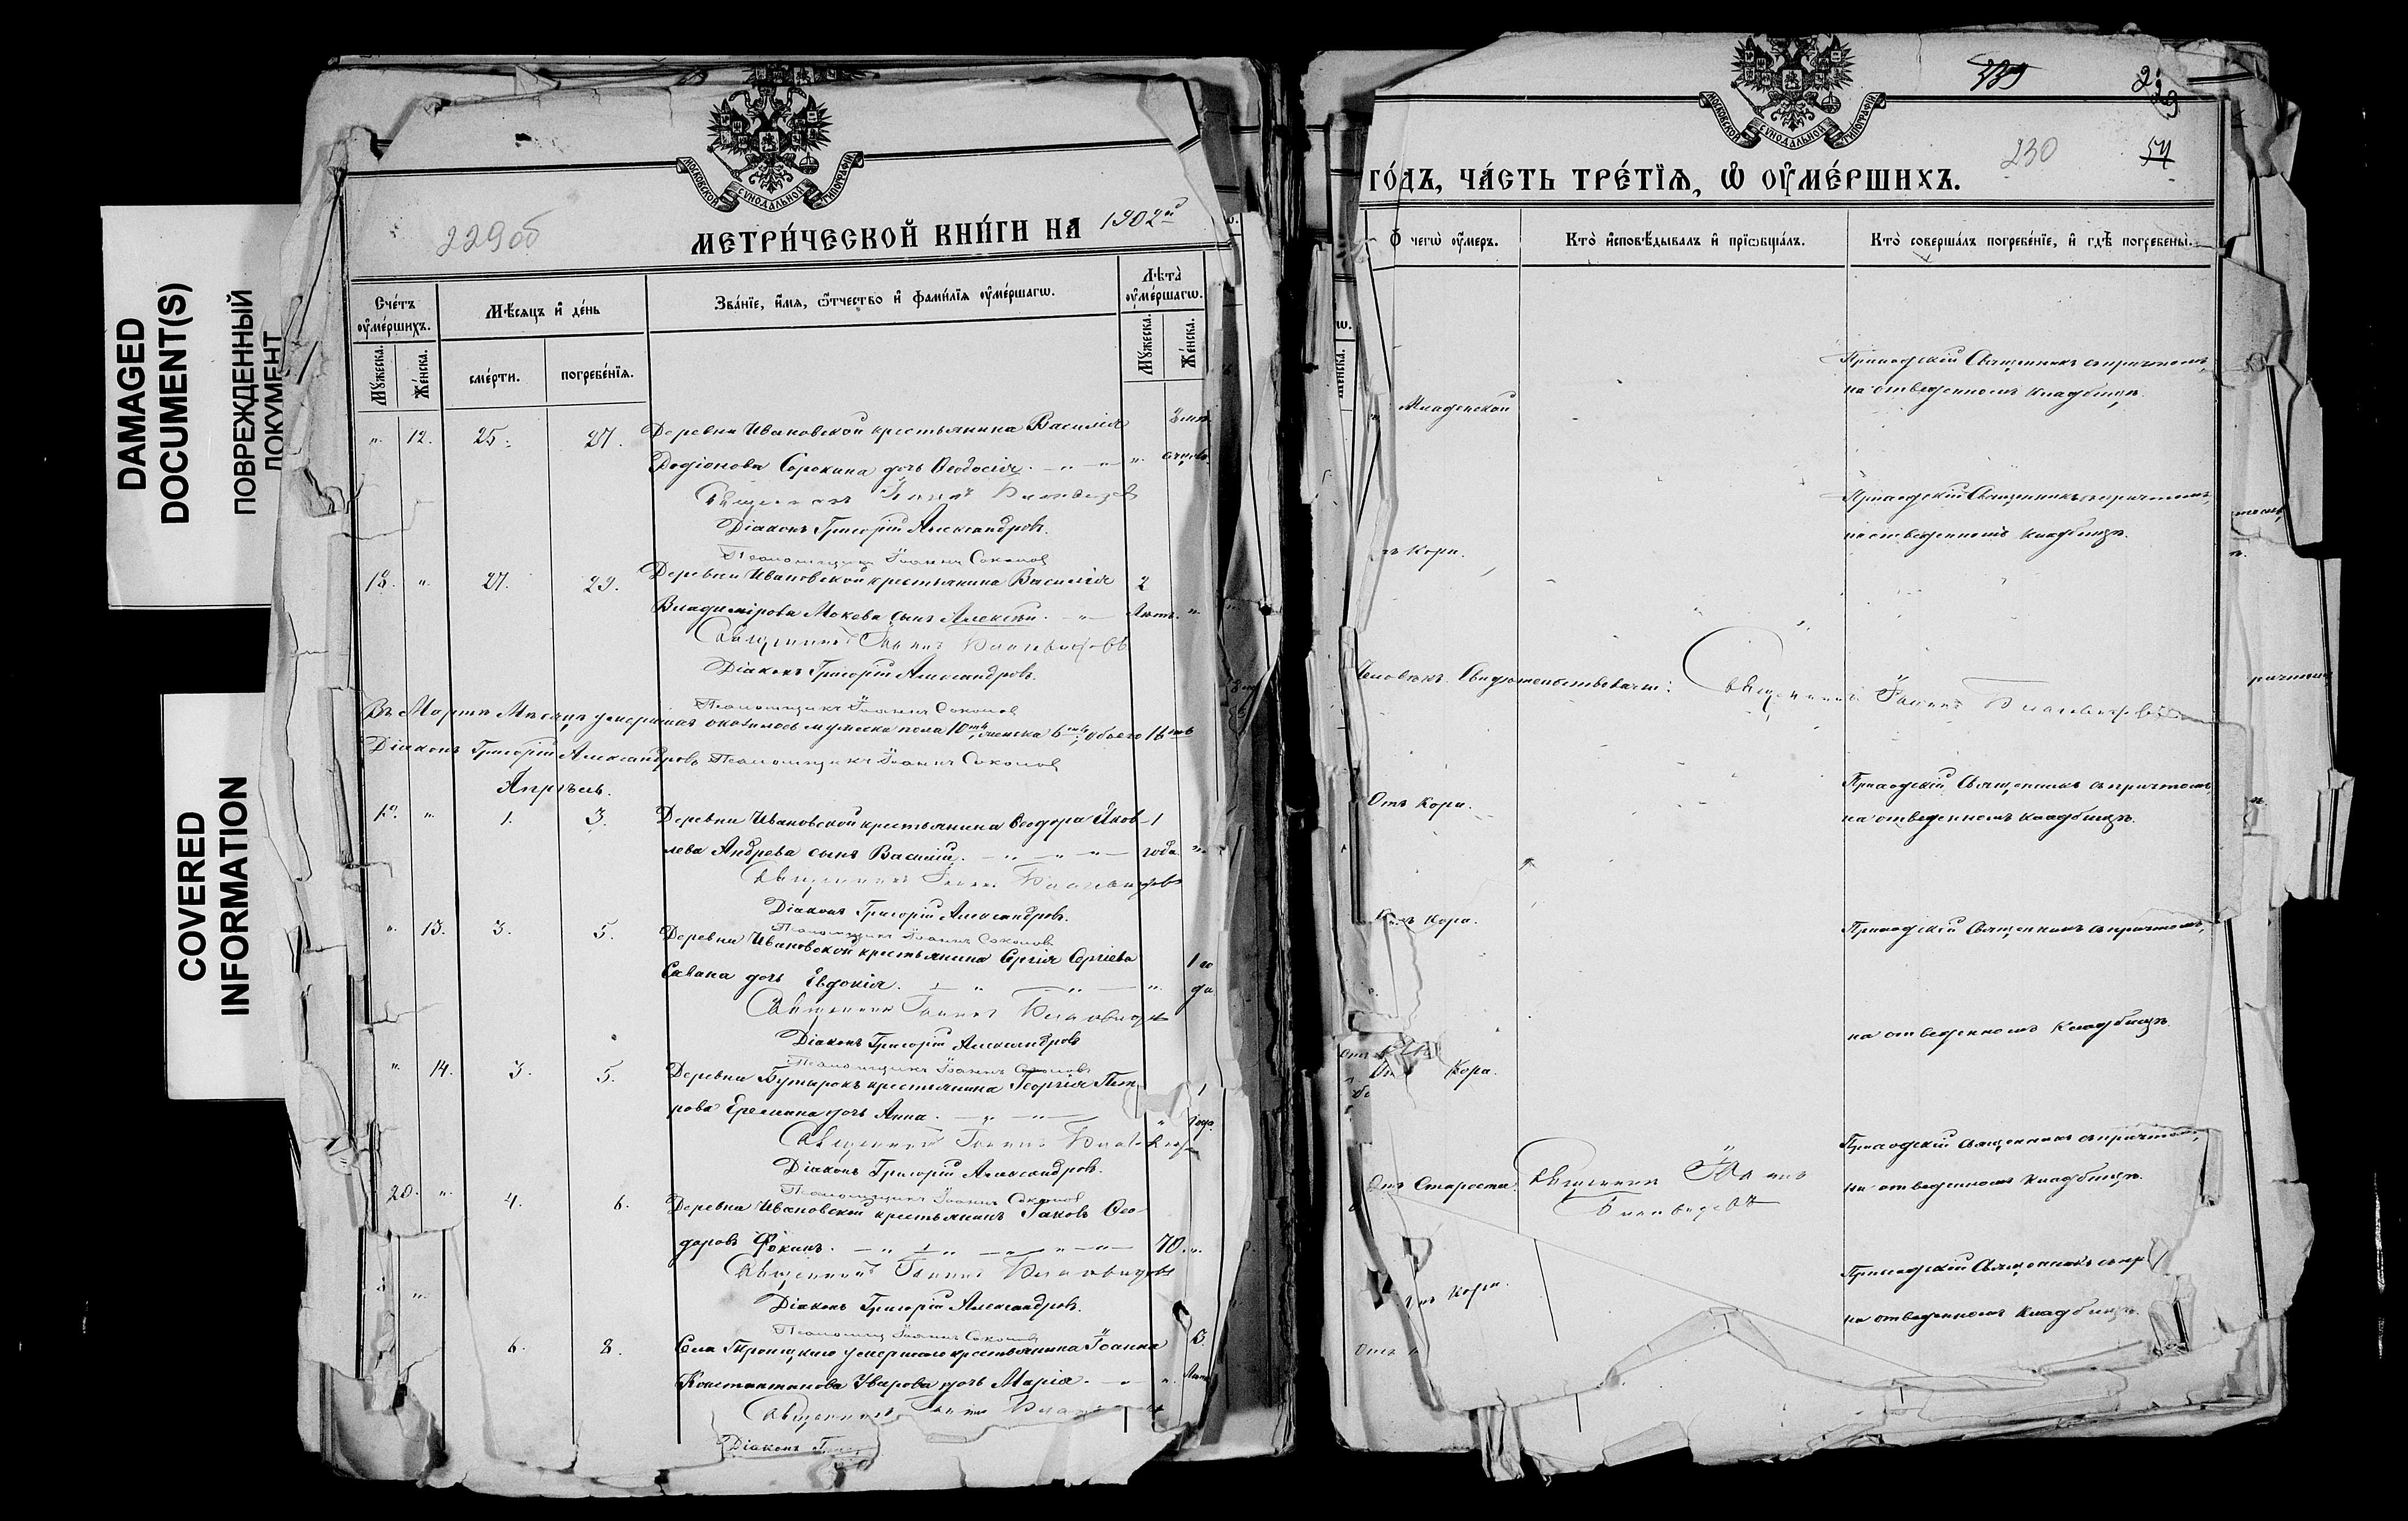 DAMAGED
DOCUMENT(S)
ПОВРЕЖДЕННЫЙ
ДОКУМЕНТ
COVERED
INFORMATION
МОСКОВСКОЙ СѴНОДАЛЬНОЙ ТИПОГРАФІИ
229об
МЕТРИ́ЧЕСКОЙ КНИ́ГИ НА 1902й
Счётъ оуме́ршихъ.
Мѣ́сяцъ и де́нь
Зва́нїе, и́мя, ѿтчество и фами́лїя оуме́ршагѡ.
Лѣта̀ оуме́ршагѡ.
Мꙋ́жеска.
Же́нска.
сме́рти.
погребе́нїя.
Мꙋ́жеска.
Же́нска.
" 12. 25. 27. Деревни Ивановской крестьянина Василія
Родіонова Сорокина дочь Ѳеодосія. "
Священникъ Іоаннъ
Діаконъ Григорій Александровъ.
Псаломщикъ Іоаннъ Соколов
18. " 27. 29. Деревни Ивановской крестьянина Василія 2
Владимірова Мокева сынъ Алексѣй. Лѣтъ. "
Священникъ Іоаннъ
Діаконъ Григорій Александровъ.
Псаломщикъ Іоаннъ Соколов
Въ Мартѣ Мѣсяцѣ умершихъ оказалось мужеска пола 10ть, женска 6ть, обоего 16ть
Діаконъ Григорій Александровъ Псаломщикъ Іоаннъ Соколов
Апрѣль.
19. " 1. 3. Деревни Ивановской крестьянина Ѳеодора Яков- 1
лева Андрева сынъ Василій. года "
Священникъ Іоаннъ
Діаконъ Григорій Александровъ.
Псаломщикъ Іоаннъ Соколов
" 13. 3. 5. Деревни Ивановской крестьянина Сергія Сергіева 1 го
Савана дочь Евдокія. " да
Священникъ Іоаннъ
Діаконъ Григорій Александровъ
Псаломщикъ Іоаннъ Соколовъ
" 14. 3. 5. Деревни Бутырокъ крестьянина Георгія Пет- 1
рова Еремина дочь Анна. " года
Священникъ Іоаннъ
Діаконъ Григорій Александровъ.
Псаломщикъ Іоаннъ Соколов
20. " 4. 6. Деревни Ивановской крестьянинъ Іаковъ Ѳео-
доровъ Фокинъ. 70. "
Священникъ Іоаннъ
Діаконъ Григорій Александровъ.
Псаломщ Іоаннъ Соколов
" 6. 8. Села Троицкаго умершаго крестьянина Іоанна 3
Константинова Уварова дочь Марія. "
Священникъ
Діаконъ
МОСКОВСКОЙ СѴНОДАЛЬНОЙ ТИПОГРАФІИ
239
229
230
54
ГО́ДЪ, ЧА́СТЬ ТРЕ́ТЇЯ, Ѡ ОУМЕ́РШИХЪ.
Ѿ чегѡ̀ оу́меръ.
Кто̀ и́сповѣ́дывалъ и прїѡбща́лъ.
Кто̀ соверша́лъ погребе́нїе, и гдѣ̀ погребены̀.
Младенской
Приходскій Священникъ съ причтомъ,
на отведенномъ кладбищѣ.
Кори.
Приходскій Священникъ съ причтомъ,
на отведенномъ кладбищѣ.
Свидѣтельствовали: Священникъ Іоаннъ
Отъ Кори.
Приходскій Священникъ съ причтомъ,
на отведенномъ кладбищѣ.
Кори.
Приходскій Священникъ съ причтомъ,
на отведенномъ кладбищѣ.
Кори.
Отъ Старости.
Священникъ Іоаннъ
Приходскій Священникъ съ причтомъ,
на отведенномъ кладбищѣ.
Отъ Кори.
Приходскій Священникъ съ пр
на отведенномъ кладбищѣ.